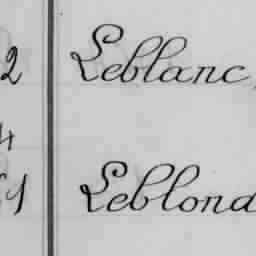 2 Leblanc,
4
51 Leblond